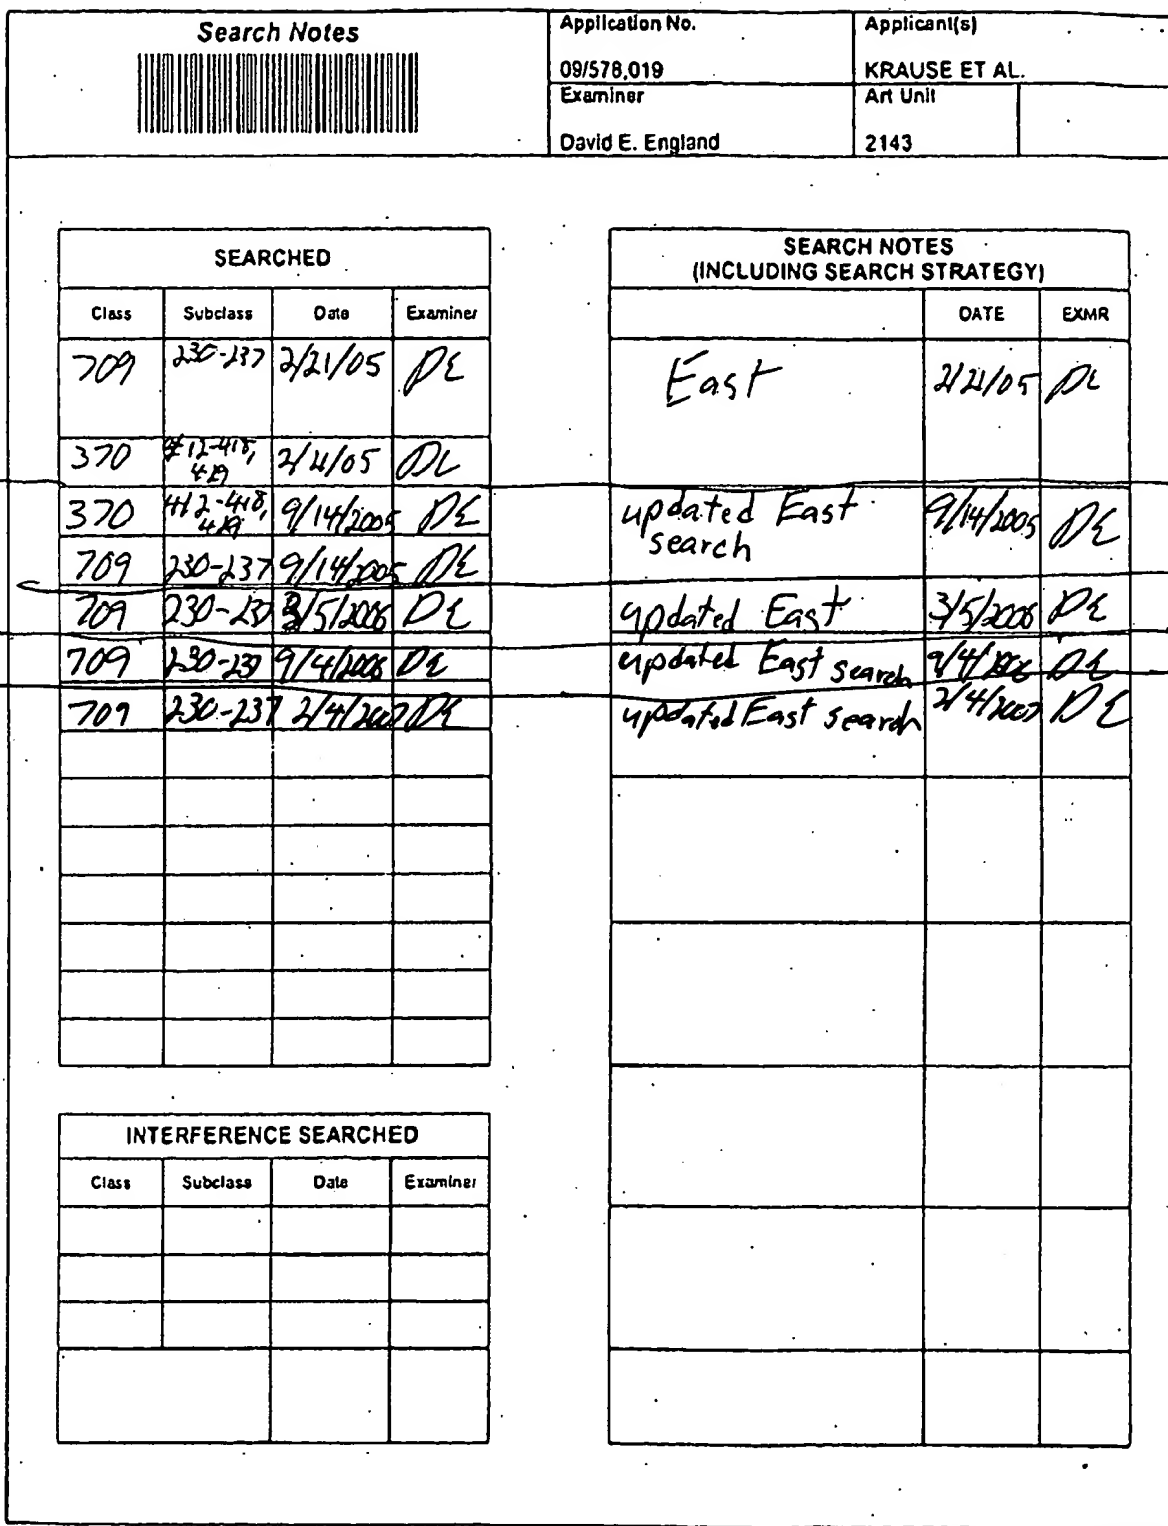 Search Notes
Application No.
09/578,019
Applicant(s)
KRAUSE ET AL.
Examiner
David E. England
Art Unit
2143
SEARCHED
Class Subclass Date Examiner
709 230-237 2/21/05 DE
370 412-418, 2/21/05 DE
419
370 412-418, 9/14/2005 DE
419
709 230-237 9/14/2005 DE
709 230-237 3/5/2006 DE
709 230-237 9/4/2006 DE
709 230-237 2/4/2007 DE
SEARCH NOTES
(INCLUDING SEARCH STRATEGY)
DATE EXMR
East 2/21/05 DE
updated East 9/14/2005 DE
search
updated East 3/5/2006 DE
updated East search 9/4/2006 DE
updated East search 2/4/2007 DE
INTERFERENCE SEARCHED
Class Subclass Date Examiner